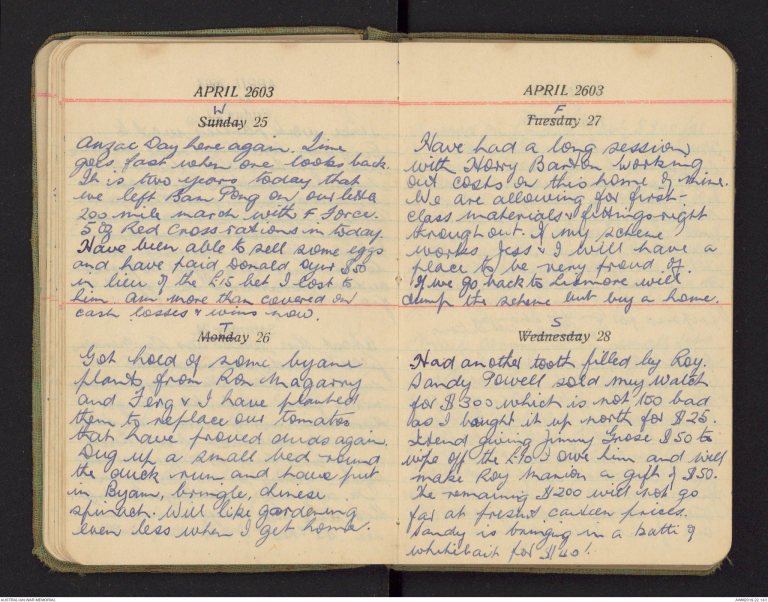 APRIL 2603
W
Sunday 25
Anzac Day here again. Time
goes fast when one looks back.
It is two years today that
we left Ban Pong on our little
200 mile march with F Force.
5 oz Red Cross rations in today.
Have been able to sell some eggs
and have paid Donald Dyer $50
in lieu of the £15 bet I lost to
him. Am more than covered on
cash losses & wins now.
T
Monday 26
Got hold of some byam
plants from Ron Magarry
and Ferg & I have planted
them to replace our tomatos
that have proved duds again.
Dug up a small bed round
the duck run and have put
in Byam, bringle, chinese
spinach. Will like gardening
even less when I get home.
APRIL 2603
F
Tuesday 27
Have had a long session
with Harry Barton working
out costs on this home of mine.
We are allowing for first-
class materials & fittings right
throughout. If my scheme
works Jess & I will have a
place to be very proud of.
If we go back to Lismore will
dump the scheme but buy a home.
S
Wednesday 28
Had another tooth filled by Roy.
Sandy Powell sold my watch
for $300 which is not too bad
as I bought it up north for $25.
Intend giving Jimmy $50 to
wipe off the £10 I owe him and will
make Roy Manion a gift of $50.
The remaining $200 will not go
far at present canteen prices.
Sandy is bringing in a of
whitebait for $40!
AUSTRALIAN WAR MEMORIAL